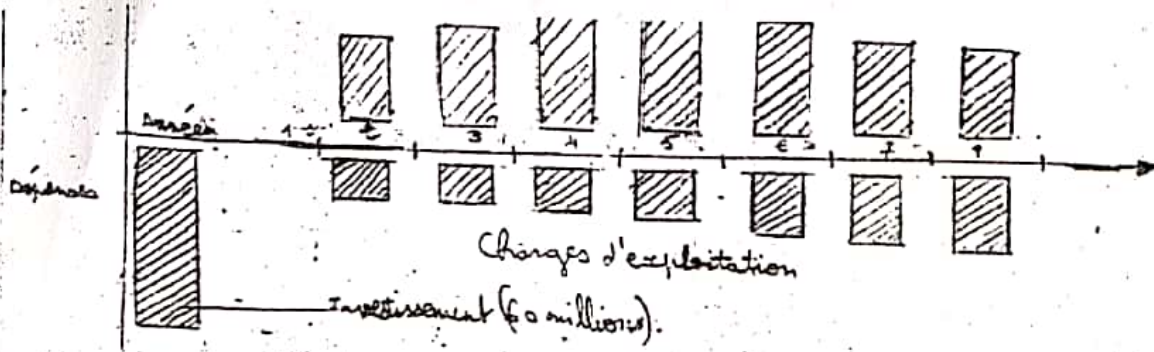 Années 1 2 3 4 5 6 7
Dépenses
Charges d'exploitation
Investissement (60 millions).